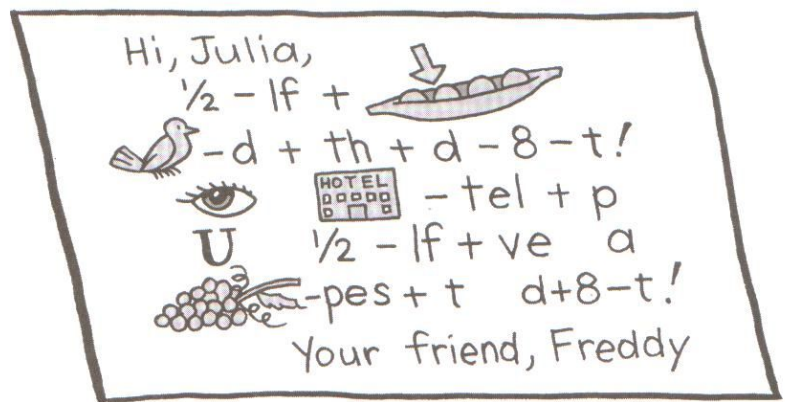 Hi, Julia,
½ - lf +
-d + th + d - 8 - t!
HOTEL - tel + p
U ½ - lf + ve a
-pes + t d+8-t!
Your friend, Freddy